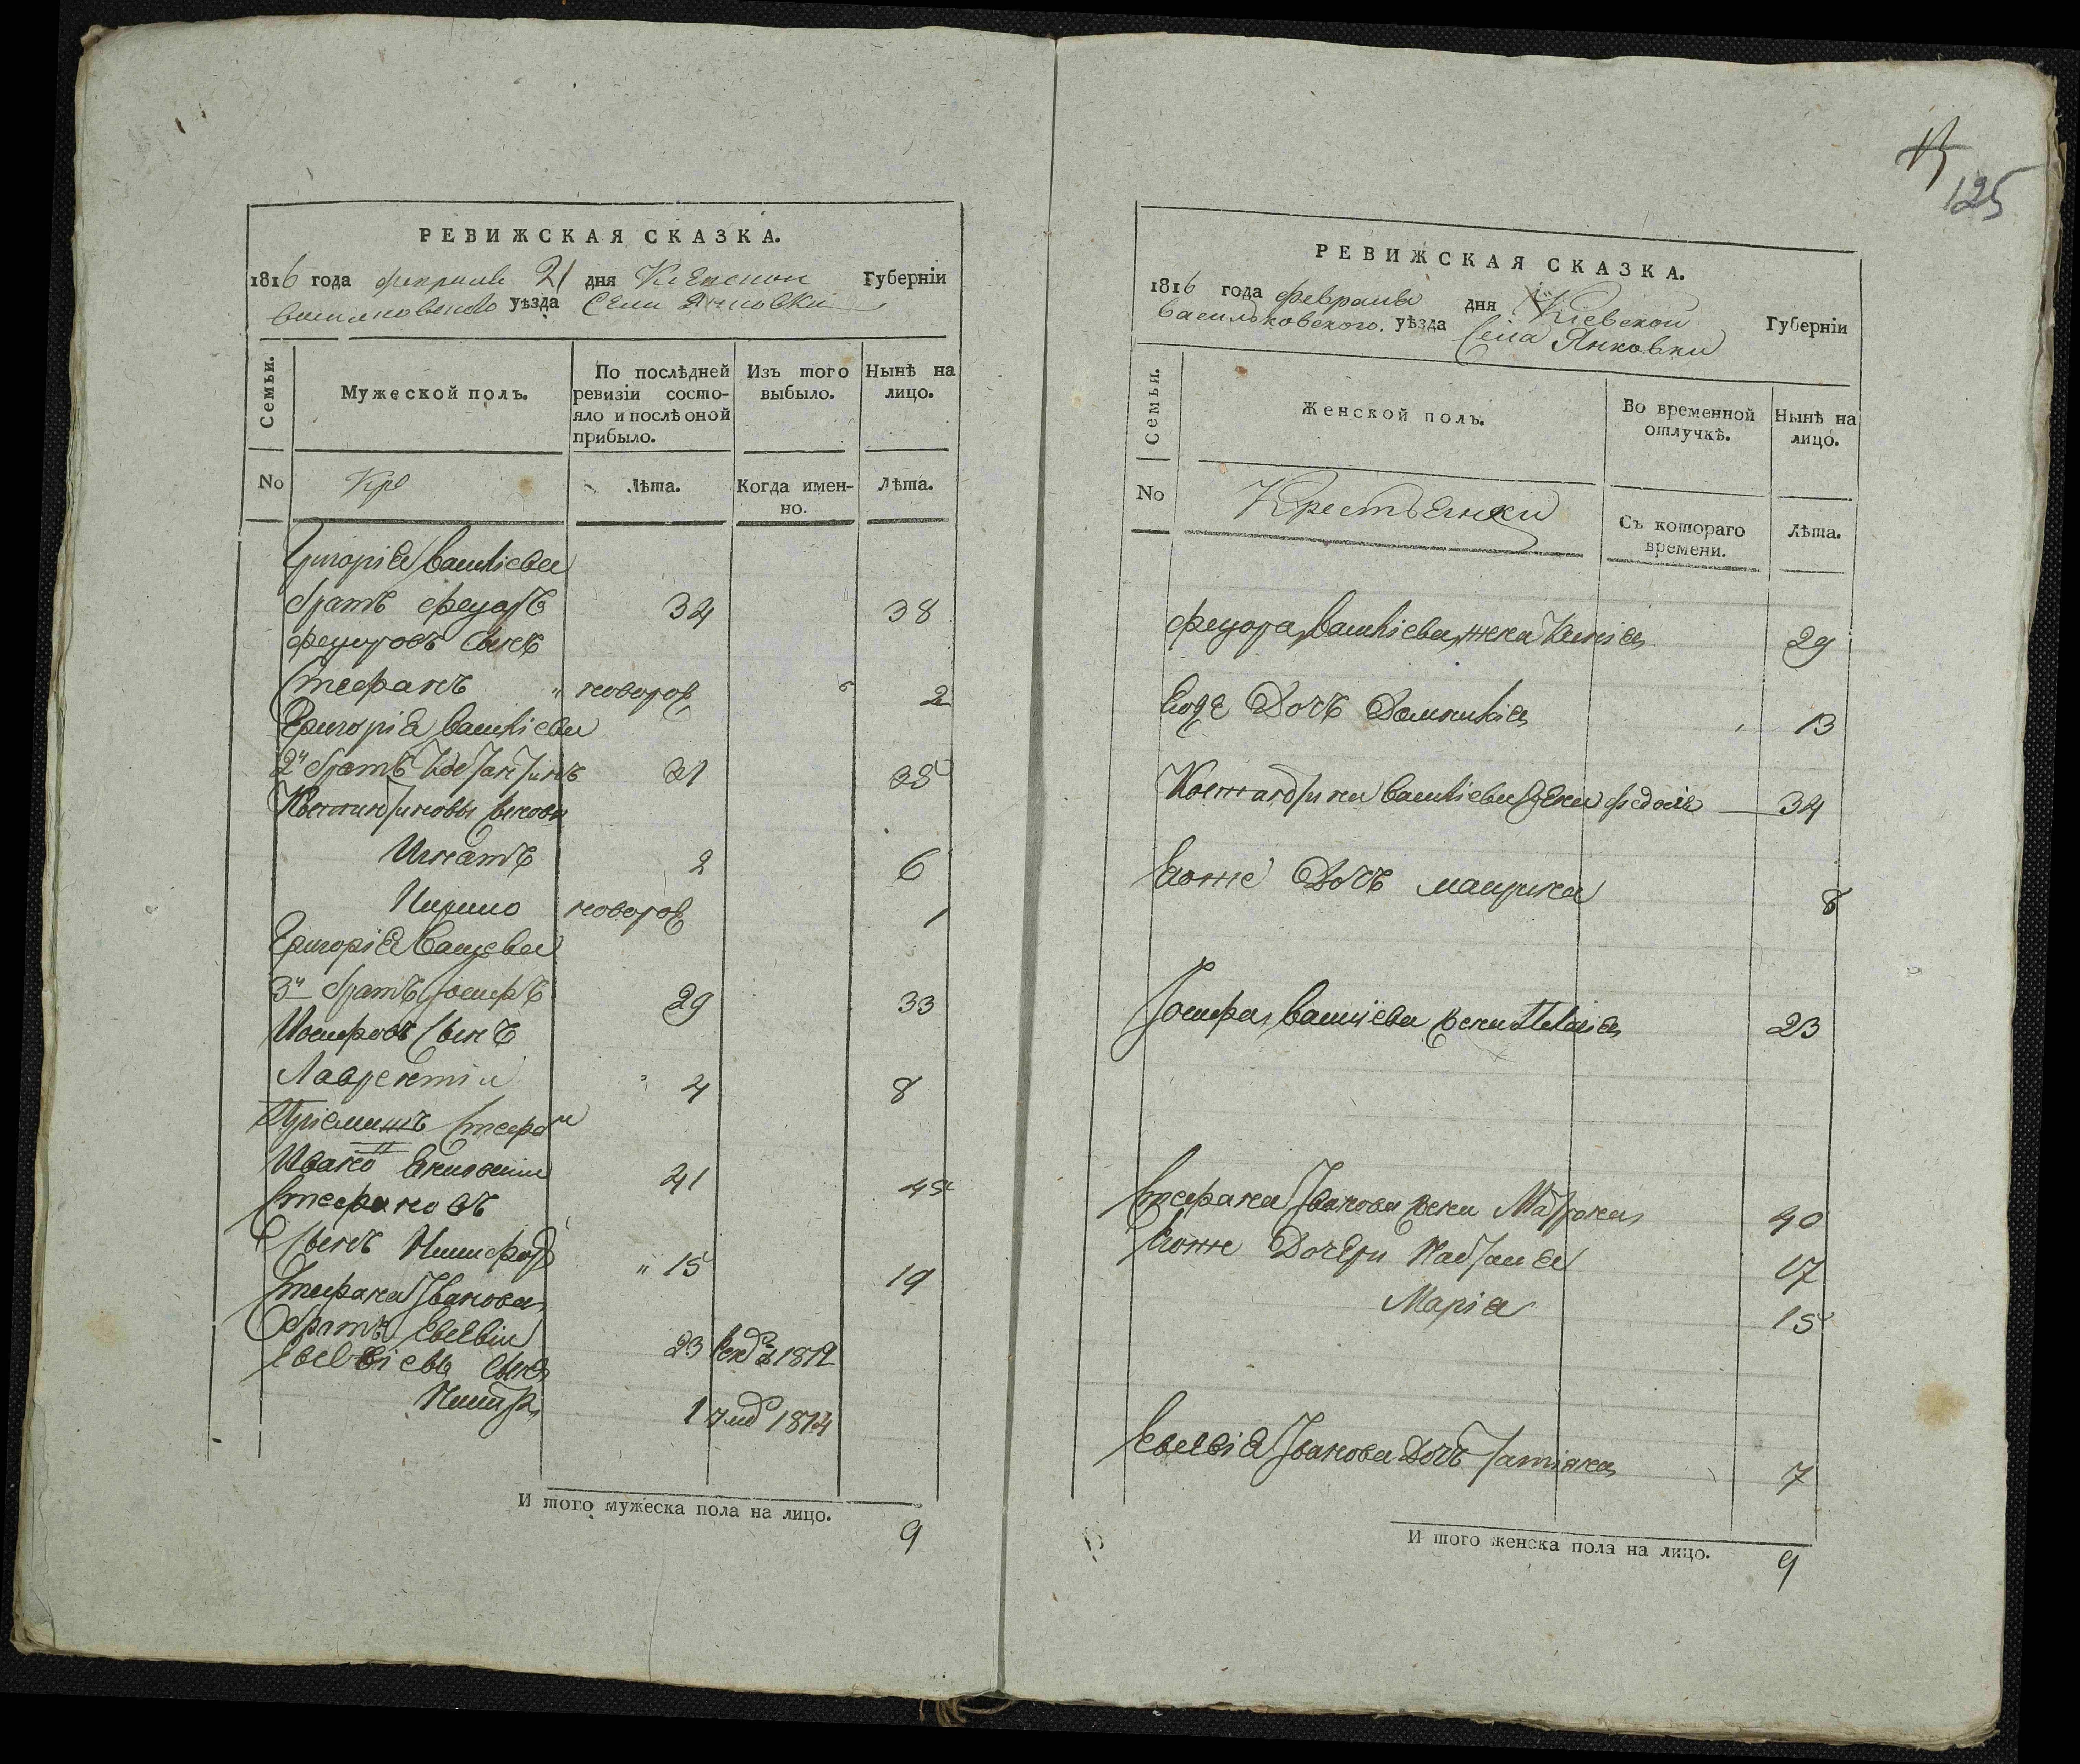 РЕВИЖСКАЯ СКАЗКА.
1816 года февраля 21 дня Киевской Губерніи
васильковского уѣзда Села Янковки
Семьи.
Мужеской полъ.
По послѣдней ревизіи состояло и послѣ оной прибыло.
Изъ того выбыло.
Нынѣ на лицо.
No
Кре
Лѣта.
Когда именно.
Лѣта.
Григорія Василіева
братъ Федоръ 34 38
Федоровъ сынъ
Стефанъ новорож 2
Григорія Василіева
2й братъ Костантинъ 21 25
Костантиновы сыновя
Игнатъ 2 6
Кирило новорож 1
Григорія Василіева
3й братъ Іосифъ 29 33
Иосифовъ сынъ
Лаврентій 4 8
Стефан
Ивано 41 45
Стефановъ
сынъ Никифоръ 15 19
Стефана Іванова
братъ Евсевій 23 1812
Евсевіевъ сынъ
1 1814
И того мужеска пола на лицо.
9
125
РЕВИЖСКАЯ СКАЗКА.
1816 года февраля дня Кіевской Губерніи
Васильковского уѣзда Села Янковки
Семьи.
Женской полъ.
Во временной отлучкѣ.
Нынѣ на лицо.
No
Крестьянки
Съ котораго времени.
Лѣта.
Федора Василіева жена Ксенія 29
Его же Дочь Домникія 13
Костантина Василіева жена Федосія 34
Егоже Дочь марина 8
Іосифа Василіева жена Пелагія 23
Стефана Іванова жена Матрона 40
Егоже Дочери Настасія 17
Марія 15
Евсевія Іванова Дочь Татіяна 7
И того женска пола на лицо.
9